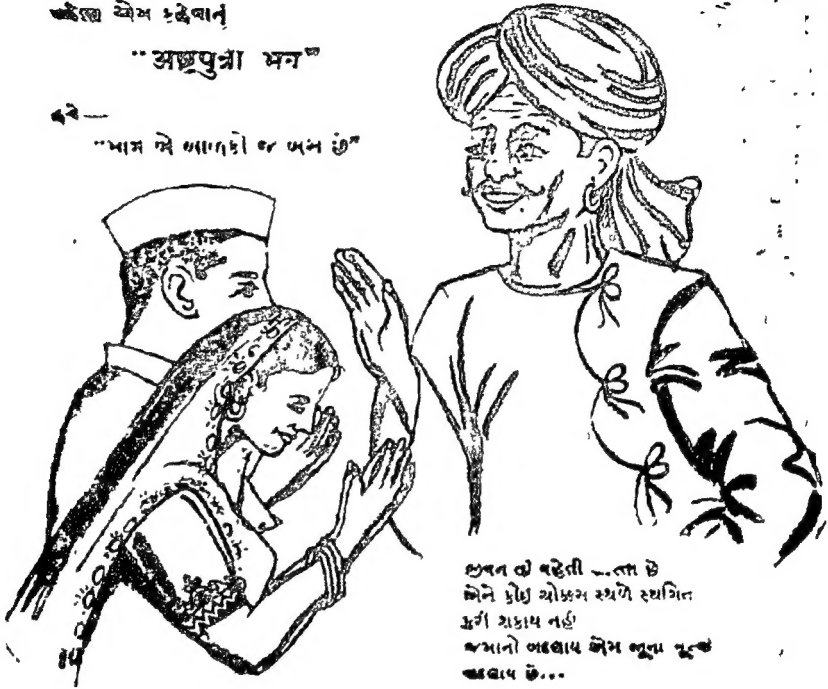 પહેલા એમ કહેવાનું
"अष्टपुत्रा भव"
હવે—
"માત્ર બે બાળકો જ બસ છે"
જીવન તો વહેતી છે
એને કોઇ ચોક્કસ સ્થળે સ્થગિત
કરી શકાય નહીં
જમાનો બદલાય એમ જૂના
બદલાય છે...